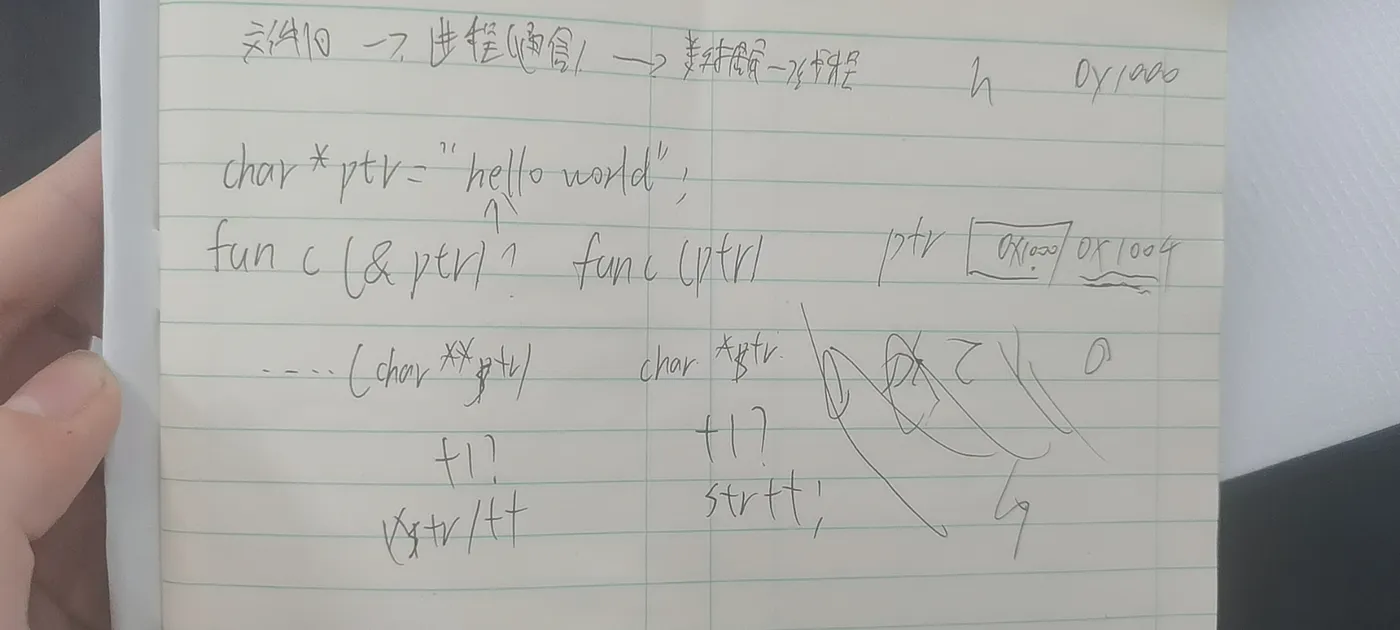 文件IO → 进程(通信) → 数据结构 → 线程
h 0x1000
char *ptr = "hello world";
func(&ptr)? func(ptr)
ptr 0x1000 0x1004
....(char **ptr) char *str. 0
+1? +1?
(*str)++ str++;